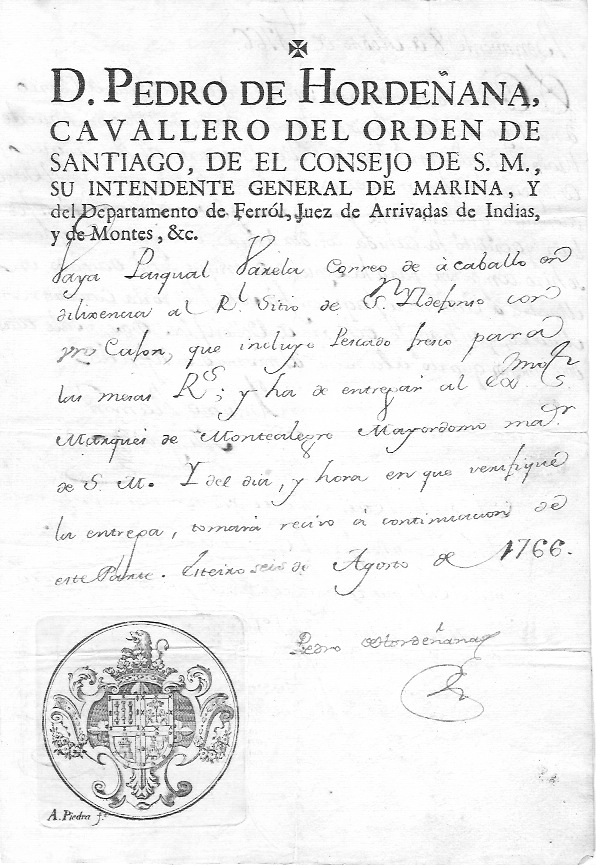 D. PEDRO DE HORDEÑANA,
CAVALLERO DEL ORDEN DE
SANTIAGO, DE EL CONSEJO DE S. M.,
SU INTENDENTE GENERAL DE MARINA, Y
del Departamento de Ferról, Juez de Arrivadas de Indias,
y de Montes, &c.
Vaya Pasqual Varela Correo de à caballo en
dilixencia al Rl. Sitio de Sn. Ildefonso con
Cajon, que incluye Pescado fresco para
las mesas Rs; y ha de entregar al Exmo. Sr.
Marques de Montealegre Mayordomo mar.
de S. M. Y del dia, y hora en que verifique
la entrega, tomará recivo à continuacion de
este Parte. seis de Agosto de 1766.
Pedro de Hordeñana
A. Piedra f.t